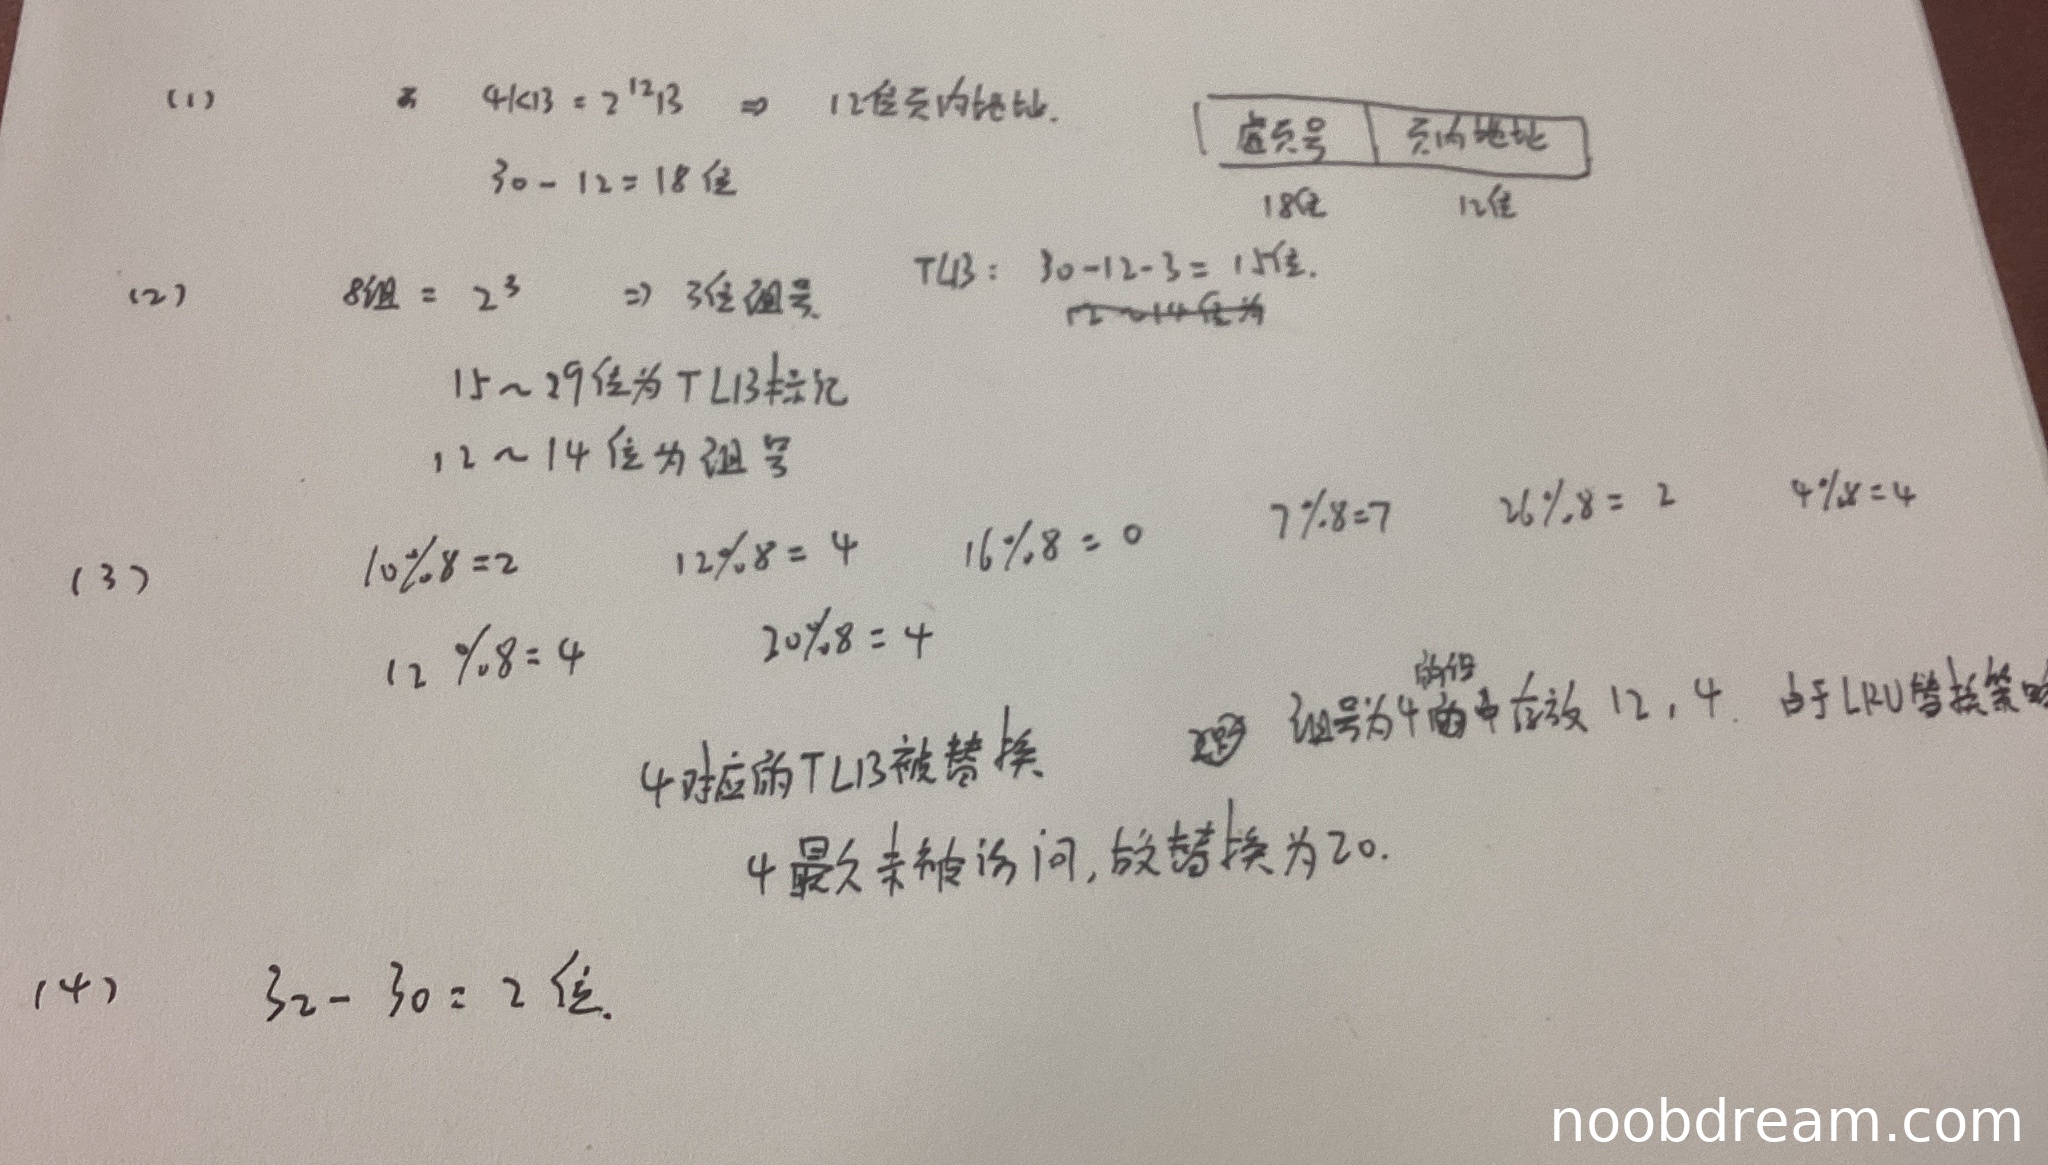 (1) 4KB = 2^12 B ⇒ 12位页内地址.
虚页号 页内地址
30 - 12 = 18位
18位 12位
(2) 8组 = 2^3 ⇒ 3位组号. TLB: 30-12-3 = 15位.
12~14位为
15~29位为TLB标记
12~14位为组号
(3) 10%8=2 12%8=4 16%8=0 7%8=7 26%8=2 4%8=4
12%8=4 20%8=4
4对应的TLB被替换 组号为4的组中存放12,4. 由于LRU替换策略
4最久未被访问,故替换为20.
(4) 32-30=2位.
noobdream.com